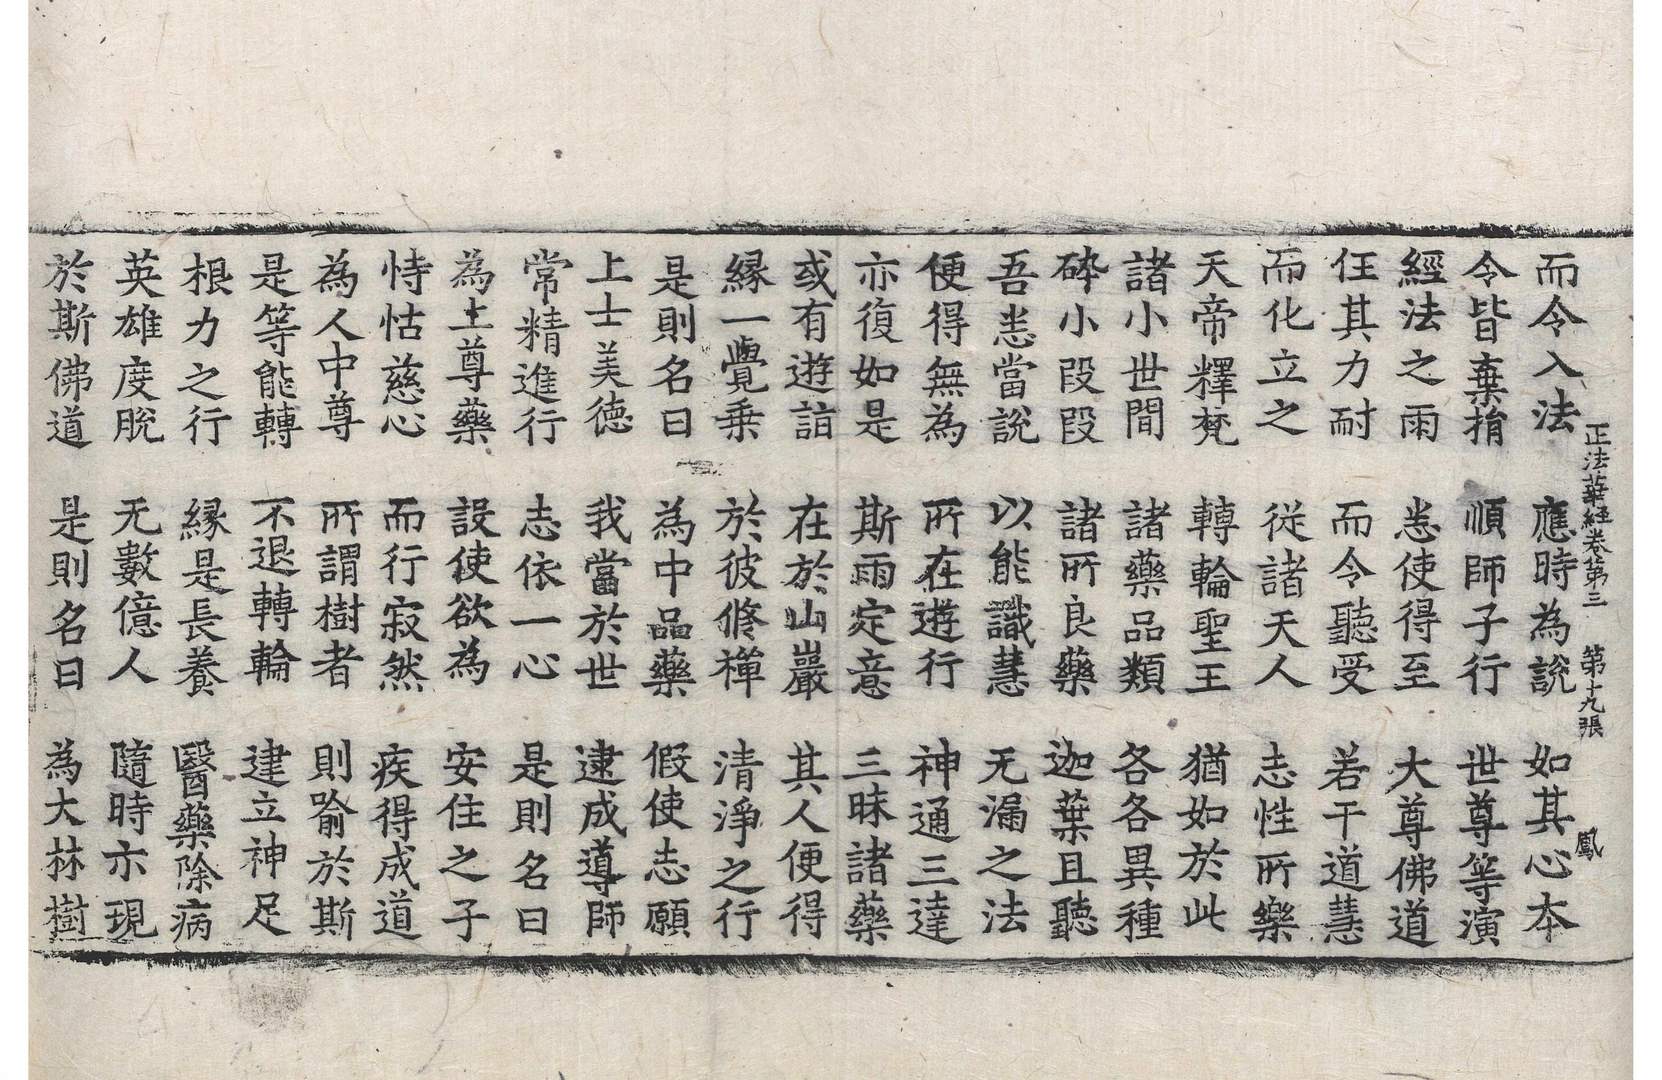 正法華經卷第三 第十九張 鳳
而令入法 應時為說 如其心本
令皆棄捐 順師子行 世尊等演
經法之雨 悉使得至 大尊佛道
任其力耐 而令聽受 若干道慧
而化立之 從諸天人 志性所樂
天帝釋梵 轉輪聖王 猶如於此
諸小世間 諸藥品類 各各異種
碎小段段 諸所良藥 迦葉且聽
吾悉當說 以能識慧 无漏之法
便得無為 所在遊行 神通三達
亦復如是 斯雨定意 三昧諸藥
或有遊詣 在於山巖 其人便得
緣一覺乗 於彼修禪 清淨之行
是則名曰 為中品藥 假使志願
上士美德 我當於世 逮成導師
常精進行 志依一心 是則名曰
為土尊藥 設使欲為 安住之子
恃怙慈心 而行寂然 疾得成道
為人中尊 所謂樹者 則喻於斯
是等能轉 不退轉輪 建立神足
根力之行 緣是長養 醫藥除病
英雄度脫 无數億人 隨時亦現
於斯佛道 是則名曰 為大林樹